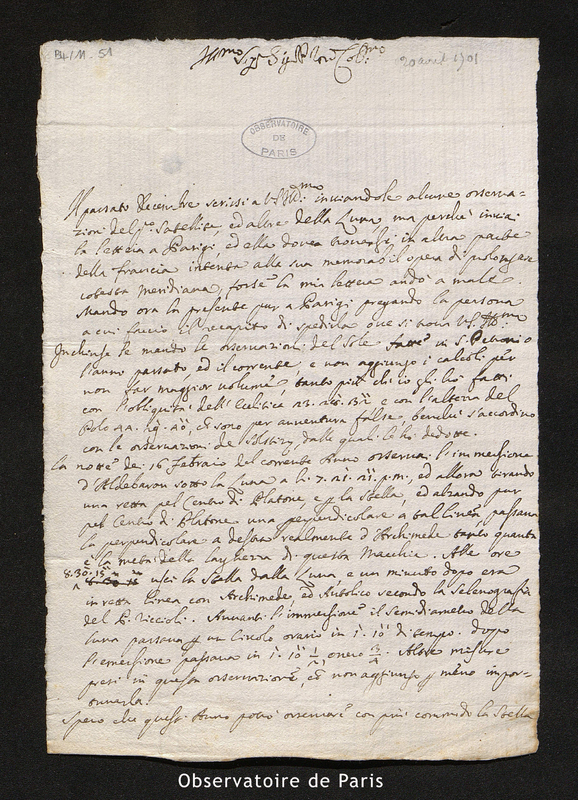 B4/11. 51
20 avril 1701
Ill.mo Sig.r Sig.r Col.mo
OBSERVATOIRE
DE
PARIS
Il passato Decembre scrissi a V.S. Ill.ma inviandole alcune osserva-
zioni de Satelliti, ed altre della Luna, ma perche inviai
la lettera a Parigi, ed ella dovea trovarsi in altra parte
della francia intenta alla sua memorabil opera di prolongare
cotesta Meridiana, forse la mia lettera andò a male.
Mando ora la presente pur a Parigi pregando la persona
a cui faccio il recapito di spedirla ove si trova V.S. Ill.ma
Inchiuse le mando le osservazioni del Sole fatte in S. Petronio
l'anno passato, ed il corrente, e non aggiungo i calcoli per
non far maggior volume, tanto più ch'io gli ho fatti
con l'obliquità dell'Eclitica 23. e con l'altezza del
Polo 44. che sono per avventura false, benche s'accordino
con le osservazioni de Solstizj dalle quali le ho dedotte.
La notte de 16 Febraio del corrente Anno osservai l'immersione
d'Aldebaran sotto la Luna a h. 7. 21. p.m., ed allora tirando
una retta pel Centro di Platone, e p la Stella, ed alzando pur
pel Centro di Platone una perpendicolare a tal linea passava
la perpendicolare a destra realmente d'Archimede tanto quanta
è la metà della larghezza di questa Macchia. Alle ore
8.30.15 uscì la Stella dalla Luna, e un minuto dopo era
in retta linea con Archimede ed Eudosso secondo la Selenografia
del P. Riccioli. Avanti l'immersione il semidiametro della
Luna passava p un Circolo orario in 1. 10 di tempo. dopo
l'emersione passava in 1. 10 1/2 overo 3/4. Altre misure
presi in questa osservazione, ed non aggiungo p meno impor-
tunarla.
Spero che quest'Anno potrò osservare con più commodo la Stella
Observatoire de Paris